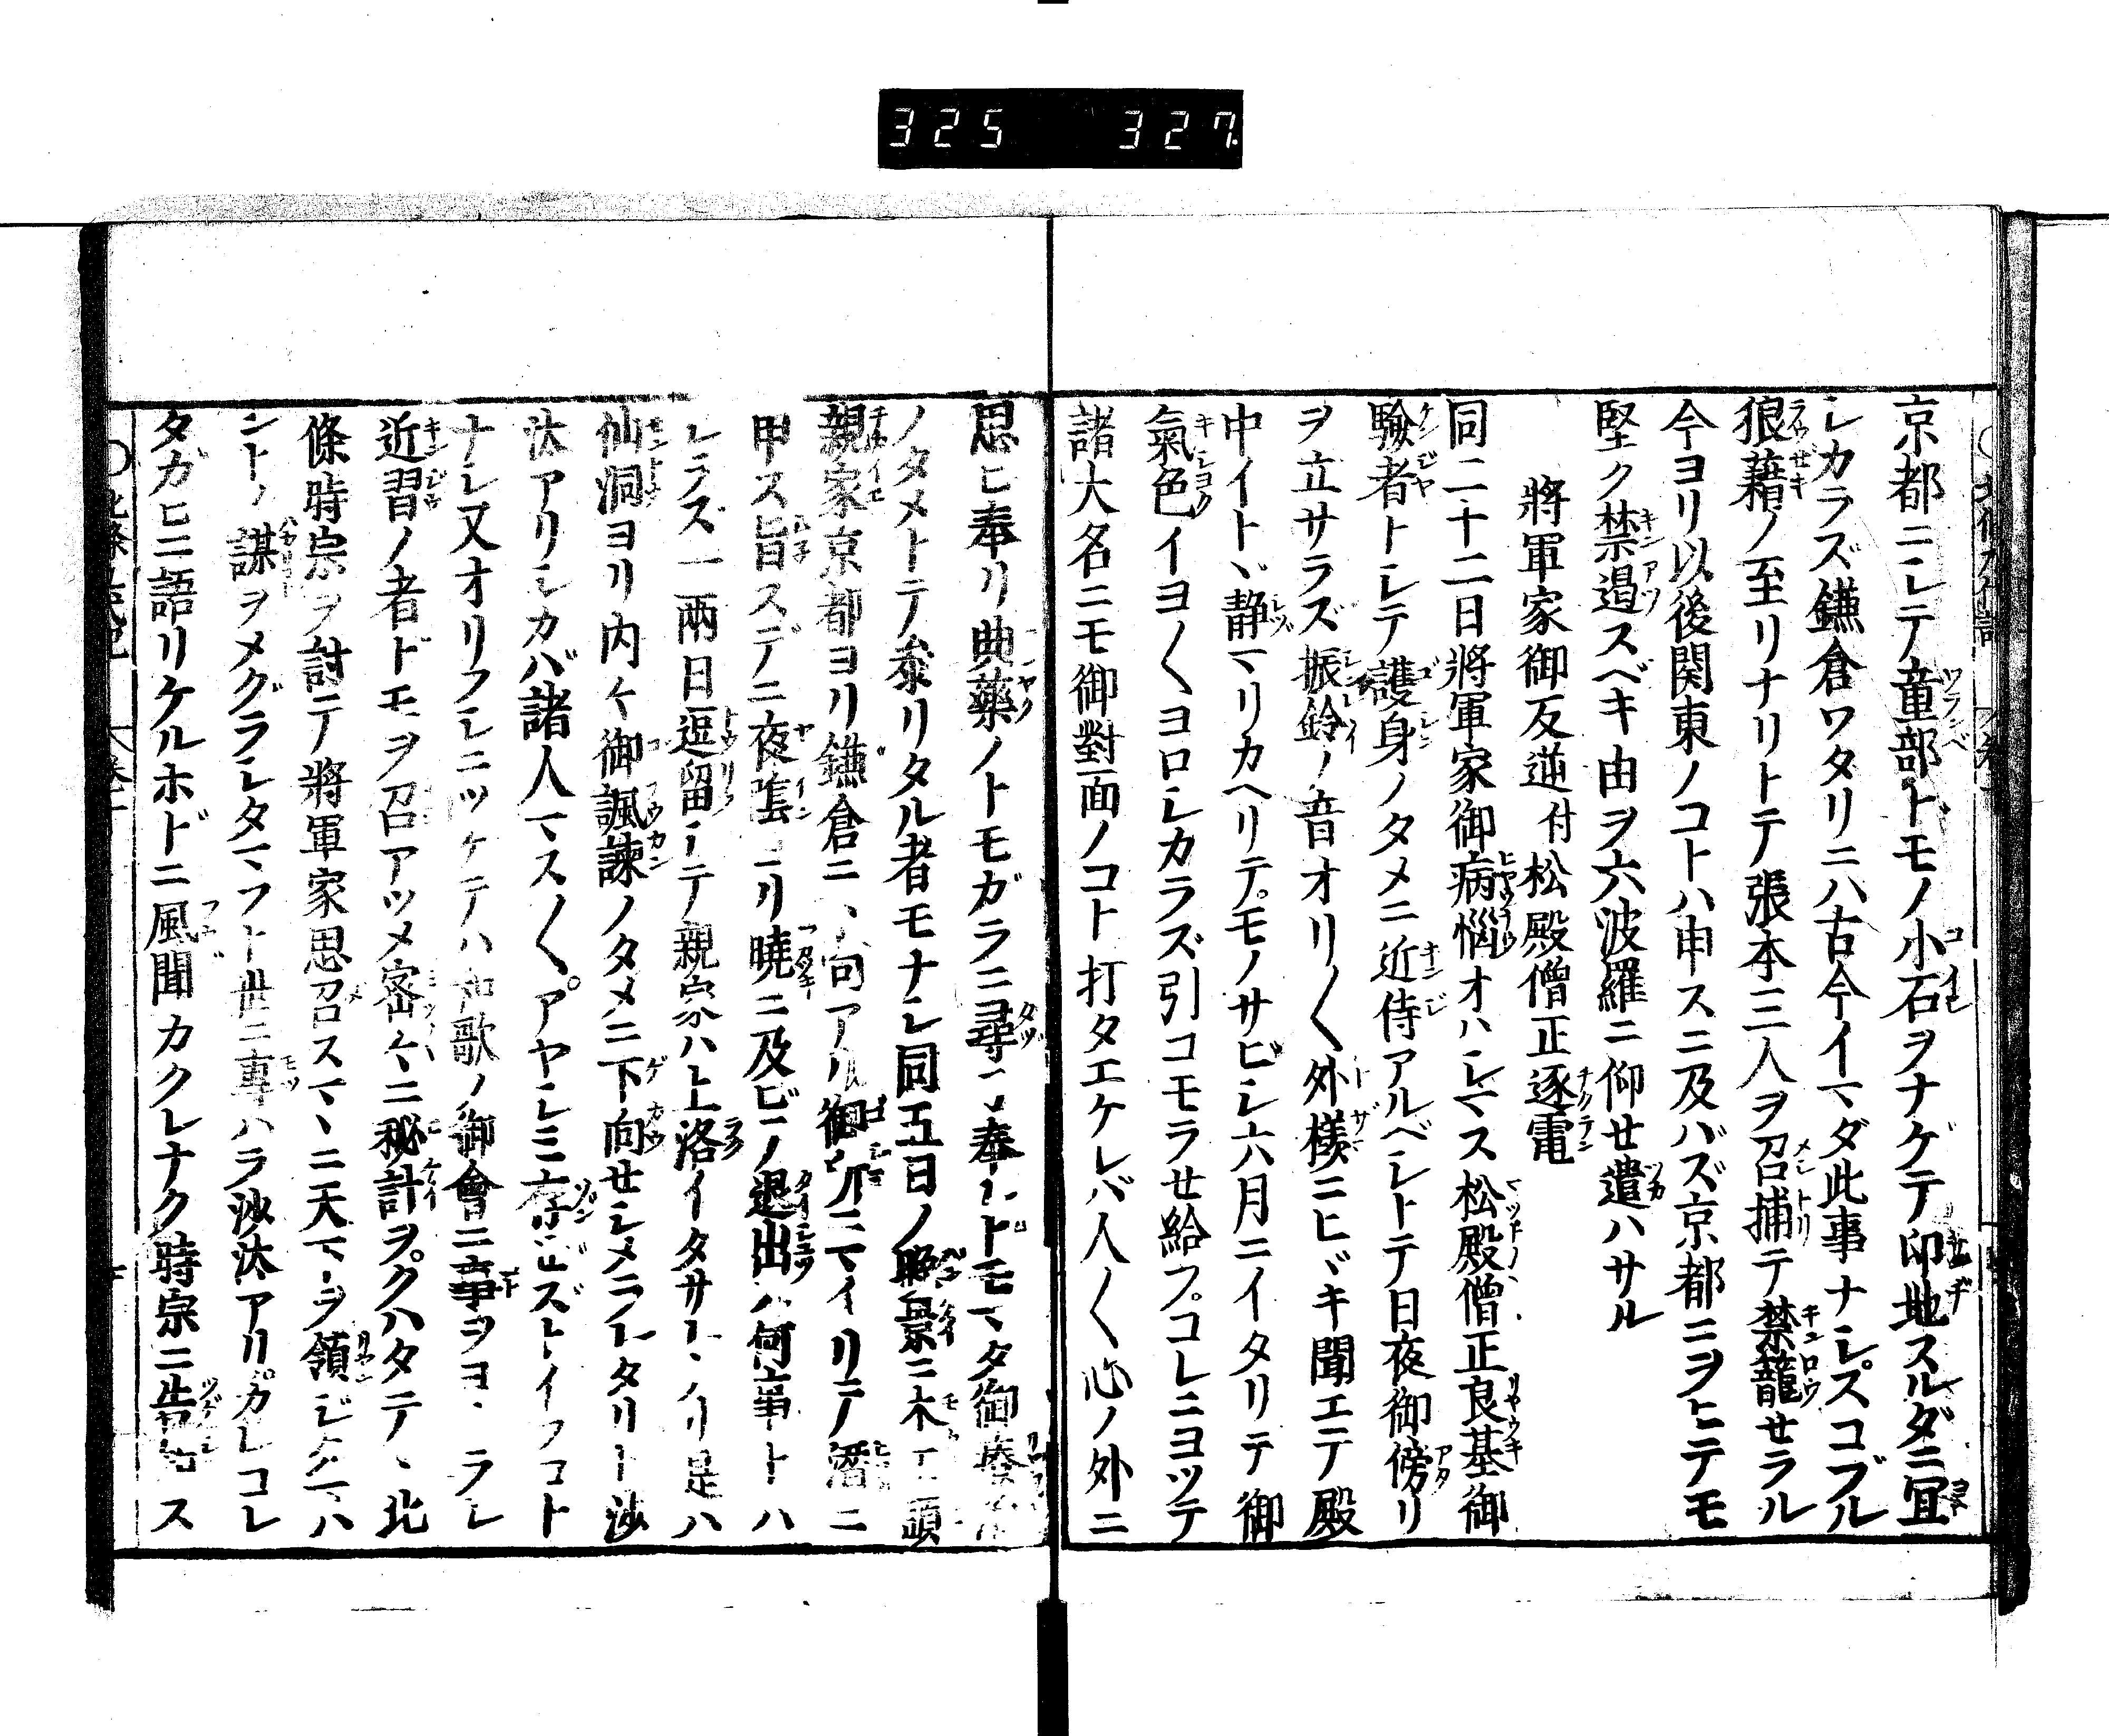 325 327
京都ニシテ童部トモノ小石ヲナゲテ印地スルダニ宜
シカラズ鎌倉ワタリニハ古今イマダ此事ナシスコブル
狼藉ノ至リナリトテ張本三人ヲ召捕テ禁籠せラル
今ヨリ以後関東ノコトハ申スニ及バズ京都ニヲヒテモ
堅ク禁遏スベキ由ヲ六波羅ニ仰せ遣ハサル
將軍家御反逆付松殿僧正逐電
同二十二日將軍家御病惱オハシマス松殿僧正良基御
驗者トシテ護身ノタメニ近侍アルベシトテ日夜御傍リ
ヲ立サラズ振鈴ノ音オリ〱外樣ニヒヾキ聞エテ殿
中イトヾ静マリカヘリテモノサビシ六月ニイタリテ御
氣色イヨ〱ヨロシカラズ引コモラせ給フコレニヨツテ
諸大名ニモ御對面ノコト打タエケレバ人〱心ノ外ニ
思ヒ奉リ典藥ノトモガラニ尋奉レドモマタ御
ノタメトテ参リタル者モナシ同五日ノ晩景ニ木工頭
親家京都ヨリ鎌倉ニ下向アリ御所ニマイリテ潜ニ
申ス旨スデニ夜陰ニ暁ニ及ビテ退出ス何事トハ
シラズ一兩日逗留シテ親家ハ上洛イタサレリ是ハ
仙洞ヨリ内々御諷諫ノタメニ下向せシメラレタリト沙
汰アリシカバ諸人マス〱アヤシミ存ぜズトイフコト
ナシ又オリフシニツケテハ和歌ノ御會ニ事ヲヨせラレ
近習ノ者ドモヲ召アツメ密々ニ秘計ヲクハタテ北
條時宗ヲ討テ將軍家思召スマヽニ天下ヲ領ジタマハ
ントノ謀ヲメグラシタマフト世ニ專ハラ沙汰アリカレコレ
タガヒニ語リケルホドニ風聞カクレナク時宗ニ告知ス